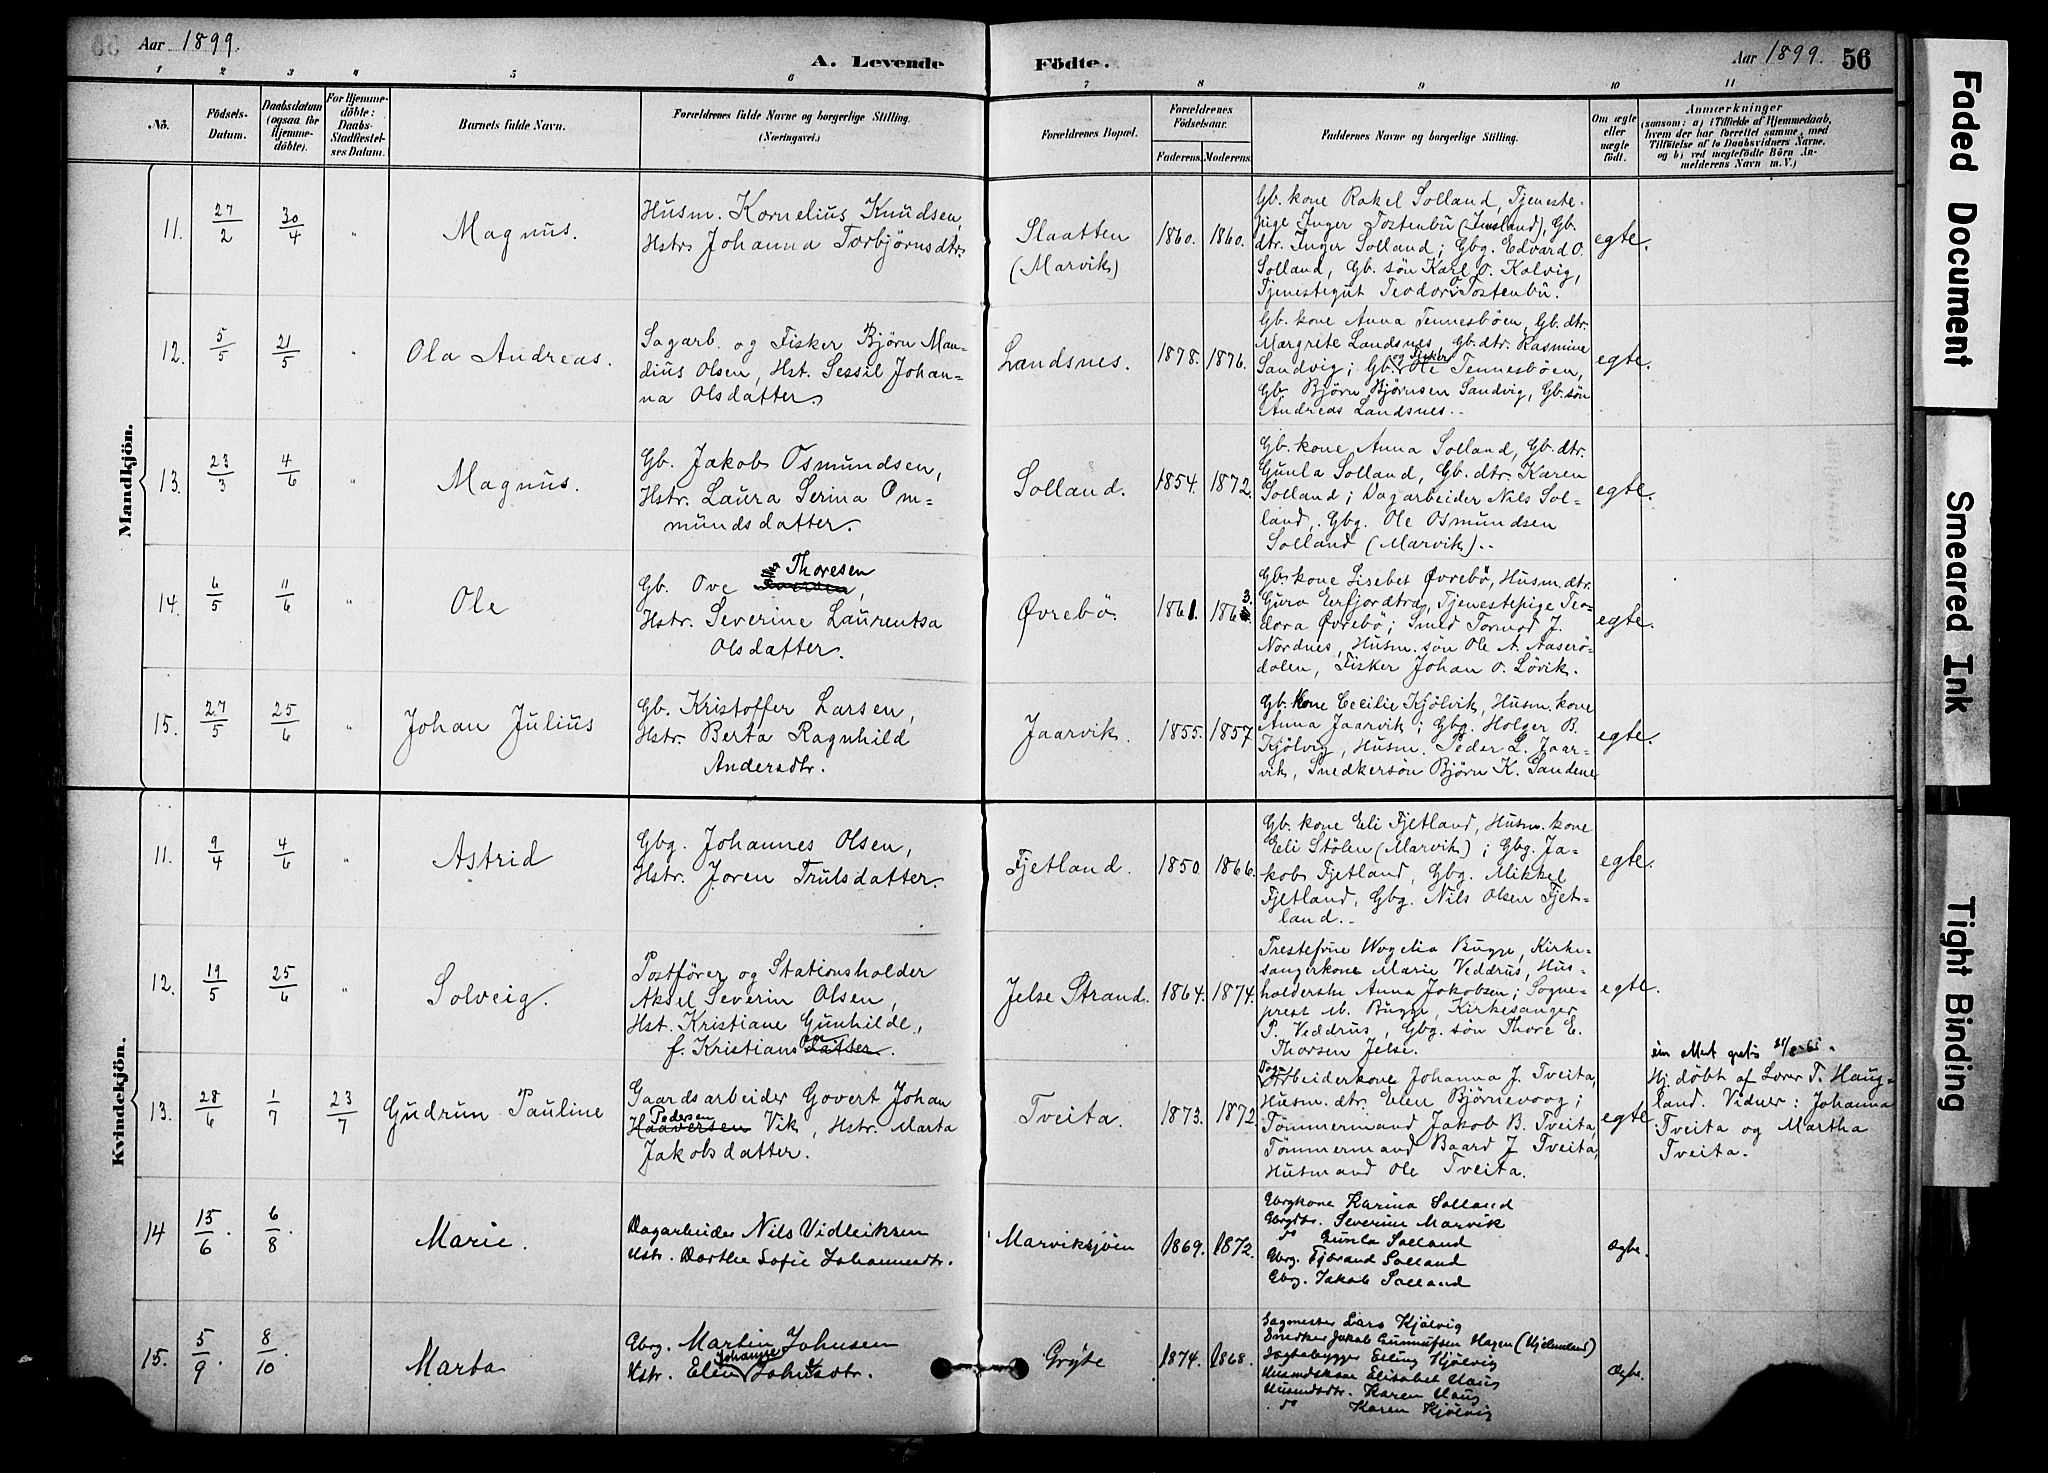 Aar 1899.
A. Levende
Födte.
Aar 1899.
56
1 2 3 4 5 6 7 8 9 10 11
No.
Födsels-
Datum.
Daabsdatum
(ogsaa for
Hjemme-
döbte).
For Hjemme-
döbte:
Daabs-
Stadfæstel-
ses Datum.
Barnets fulde Navn.
Forældrenes fulde Navne og borgerlige Stilling.
(Næringsvei.)
Forældrenes Bopæl.
Forældrenes
Födselsaar.
Faderens. Moderens.
Faddernes Navne og borgerlige Stilling.
Om ægte
eller
uægte
født.
Anmærkninger
(saasom: a) i Tilfælde af Hjemmedaab,
hvem der har forrettet samme, med
Tilföielse af to Daabsvidners Navne,
og b) ved uægtefödte Börn An-
melderens Navn m. V.)
Mandkjön.
11.
27/2
30/4
"
Magnus.
Husm. Kornelius Knudsen,
Hstr. Johanna Torbjörnsdtr.
Slaatten
(Marvik)
1860.
1860.
Gb. kone Rakel Solland, Tjeneste-
pige Inger Tostenbu (Imsland), Gb.
dtr. Inger Solland; Gbg. Edvard O.
Solland, Gb. sön Karl O. Kolvig,
Tjenestegut Teodor Tostenbu.
egte.
12.
5/5
21/5
"
Ola Andreas.
Sagarb. og Fisker Björn Man-
dius Olsen, Hst. Sessil Johan-
na Olsdatter.
Landsnes.
1878.
1876.
Gb. kone Anna Tennesböen, Gb. dtr.
Margrete Landsnes, Gb. dtr. Rasmine
Sandvig; Gb. og Fisker Ole Tennesböen,
Gb. Björn Björnsen Sandvig, Gb. sön
Andreas Landsnes..
egte.
13.
23/3
4/6
"
Magnus.
Gb. Jakob Osmundsen,
Hstr. Laura Serina Om-
mundsdatter.
Solland.
1854.
1872.
Gb. kone Anna Solland, Gb. dtr.
Gunla Solland, Gb. dtr. Karen
Solland; Dagarbeider Nils Sol-
land, Gbg. Ole Osmundsen
Solland (Marvik)..
egte.
14.
6/5
11/6
"
Ole
Thoresen
Gb. Ove
Hstr. Severine Laurentsa
Olsdatter.
Øvrebö.
1861.
1863.
Gb. kone Lisebet Øvrebö, Husm. dtr.
Guro Erfjordtræ, Tjenestepige Teo-
dora Øvrebö; Smed Tormod J.
Nordnes, Husm. sön Ole A. Aaserö-
dalen, Fisker Johan O. Lövik.
egte.
15.
27/5
25/6
"
Johan Julius
Gb. Kristoffer Larsen,
Hstr. Berta Ragnhild
Andersdtr.
Jaarvik.
1855.
1857
Gb. kone Cecilie Kjölvik, Husm. kone
Anna Jaarvik; Gbg. Holger B.
Kjölvig, Husm. Peder L. Jaar-
vik, Snedkersön Björn K. Sandene
egte.
Kvindekjön.
11.
9/4
4/6
"
Astrid
Gbg. Johannes Olsen,
Hstr. Joren Trulsdatter.
Fjetland.
1850.
1866.
Gb. kone Eli Fjetland, Husm. kone
Eli Stölen (Marvik); Gbg. Ja-
kob Fjetland, Gbg. Mikkel
Fjetland, Gbg. Nils Olsen Fjet-
land..
egte.
12.
19/5
25/6
"
Solveig.
Postförer og Stationsholder
Aksel Severin Olsen,
Hst. Kristiane Gunhilde,
f. Kristiansdatter.
Jelse Strand.
1864.
1874.
Prestefrue Wogelia Bugge, Kirke-
sangerkone Marie Veddrus, Hus-
holderske Anna Jakobsen; Sogne-
prest M. Bugge, Kirkesanger
P. Veddrus, Gbg. sön Thore E.
Thorsen Jelse.
egte.
13.
28/6
1/7
23/7
Gudrun Pauline
Gaardsarbeider Govert Johan
Pedersen
Haaversen Vik, Hstr. Marta
Jakobsdatter.
Tveita.
1873.
1872
Arbeiderkone Johanna J. Tveita,
Husm. dtr. Elen Björnevoog;
Tömmermand Jakob B. Tveita,
Tömmermand Baard J. Tveita,
Husmand Ole Tveita.
egte
Hj. döbt af Lærer T. Haug-
land. Vidner: Johanna
Tveita og Martha
Tveita.
14
15/6.
6/8.
Marie.
Dagarbeider Nils Vidleiksen
Hstr. Dorthe Sofie Johannesdtr.
Marviksjöen
1869.
1872.
Gbrgkone Karina Solland
Gbrgdtr. Severine Marvik
do Gunla Solland
Gbrg. Tjörand Solland
Gbrg. Jakob Solland
Ægte.
15.
5/9.
8/10.
Marta
Gbrg. Martin Johnsen
Johanne
Hstr. Elen Johnsdtr.
Gryte
1874.
1868.
Sagmester Lars Kjölvig
Snedker Jakob Gunnufsen Hagen (Hjelmeland)
Jagtebygger Elling Kjölvig
Husmdskone Elisabet Haug
Husmdsdtr. Karen Haug
do Karen Kjölvig
Ægte.
Faded Document
Smeared Ink
Tight Binding